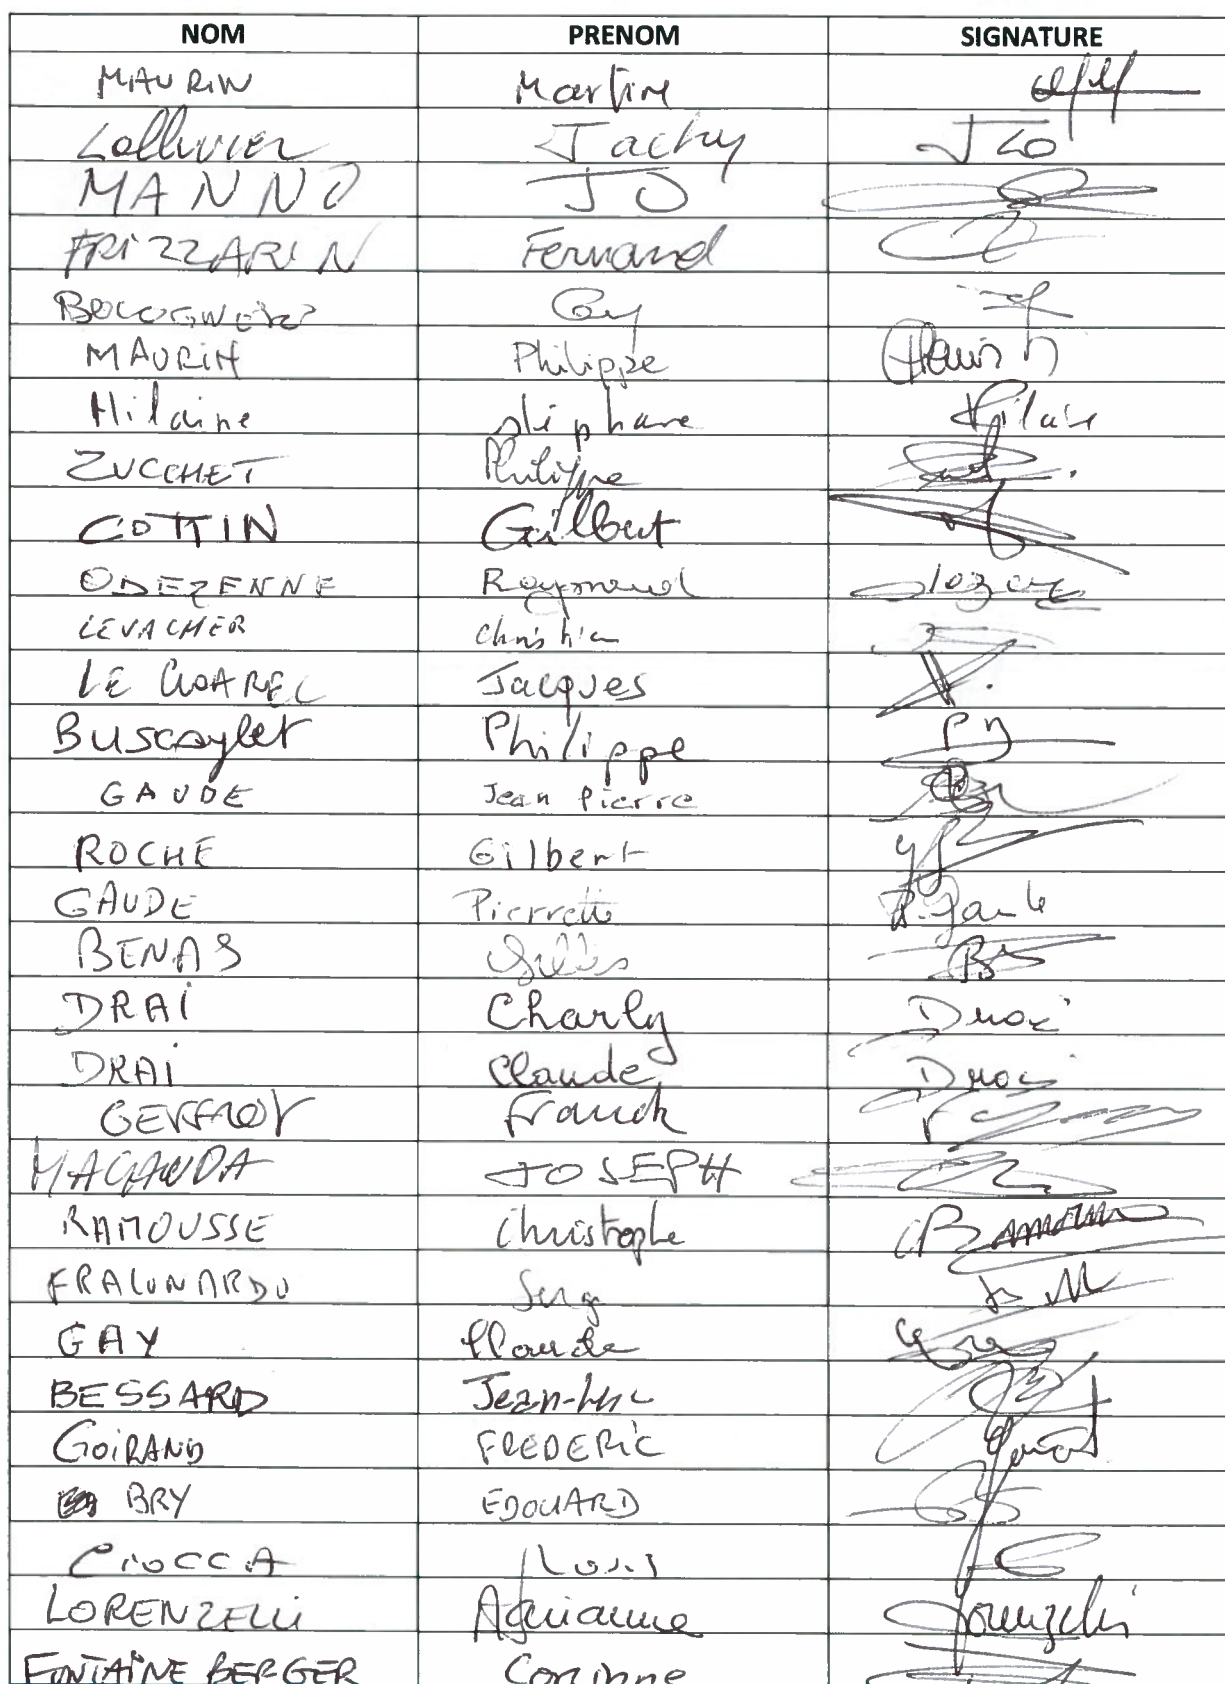 NOM PRENOM SIGNATURE
MAURIN Martine
Lollivier Jacky
MANNO JO
FRIZZARIN Fernand
Guy
MAURIN Philippe
Hilaire stéphane Hilaire
ZUCCHET Philippe
COTTIN Gilbert
ODEZENNE Raymond
LEVACHER Christian
LE CLOAREC Jacques
Buscaylet Philippe
GAUDE Jean Pierre
ROCHE Gilbert
GAUDE Pierrette P. Gaude
BENAS Gilles
DRAI Charly Drai
DRAI Claude Drai
GEFFROY Franck
MAGANDA JOSEPH
RAMOUSSE Christophe
FRALONARDO Serge
GAY Claude
BESSARD Jean-Luc
GOIRAND FREDERIC
BRY EDOUARD
CIOCCA Louis
LORENZELLI Lorenzelli
FONTAINE BERGER Corinne